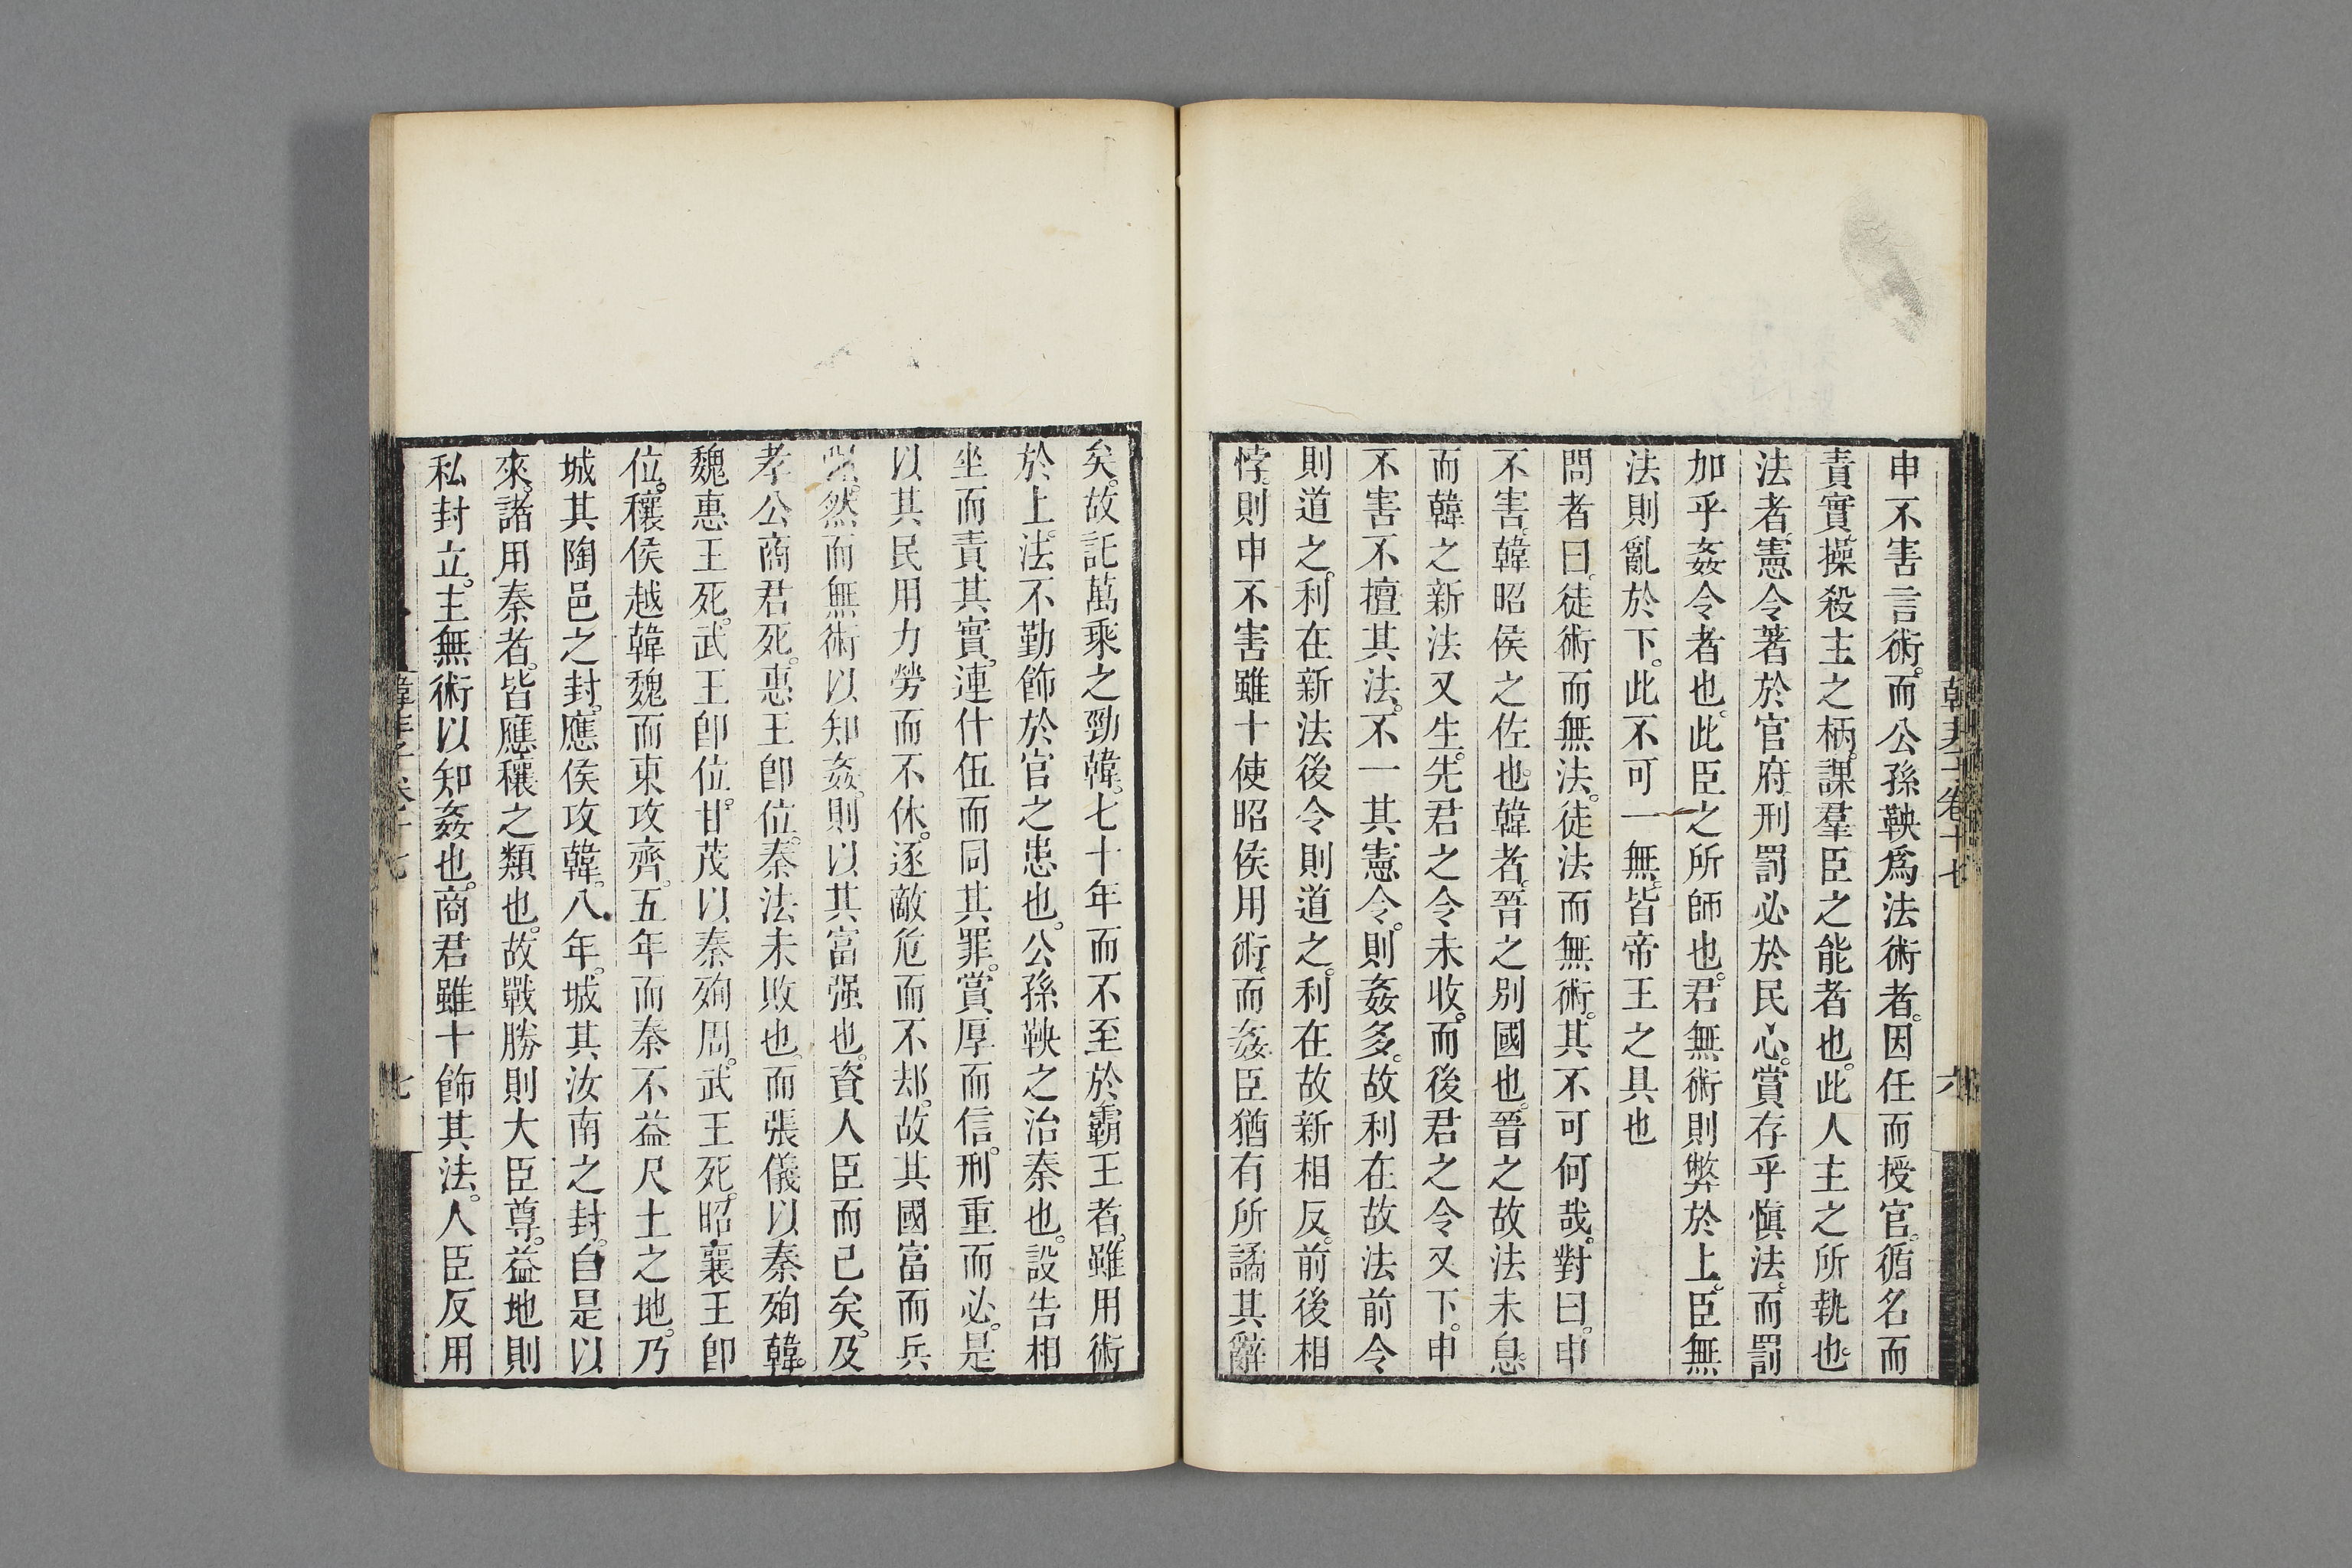 申不害言術。而公孫鞅爲法術者。因任而授官。循名而
責實。操殺主之柄。課羣臣之能者也。此人主之所執也。
法者。憲令著於官府。刑罰必於民心。賞存乎愼法。而罰
加乎姦令者也。此臣之所師也。君無術則弊於上。臣無
法則亂於下。此不可一無。皆帝王之具也
問者曰。徒術而無法。徒法而無術。其不可何哉。對曰。申
不害。韓昭侯之佐也。韓者。晉之別國也。晉之故法未息。
而韓之新法又生。先君之令未收。而後君之令又下。申
不害不擅其法。不一其憲令。則姦多。故利在故法前令
則道之。利在新法後令則道之。利在故新相反。前後相
悖。則申不害雖十使昭侯用術。而姦臣猶有所譎其辭
韓非子卷十七
六
矣。故託萬乘之勁韓。七十年而不至於霸王者。雖用術
於上。法不勤飾於官之患也。公孫鞅之治秦也。設告相
坐而責其實。連什伍而同其罪。賞厚而信。刑重而必。是
以其民用力勞而不休。逐敵危而不却。故其國富而兵
强。然而無術以知姦。則以其富强也。資人臣而已矣。及
孝公商君死。惠王卽位。秦法未敗也。而張儀以秦殉韓。
魏惠王死。武王卽位。甘茂以秦殉周。武王死。昭襄王卽
位。穰侯越韓魏而東攻齊。五年而秦不益尺土之地。乃
城其陶邑之封。應侯攻韓。八年。城其汝南之封。自是以
來。諸用秦者。皆應穰之類也。故戰勝則大臣尊。益地則
私封立。主無術以知姦也。商君雖十飾其法。人臣反用
韓非子卷十七
七